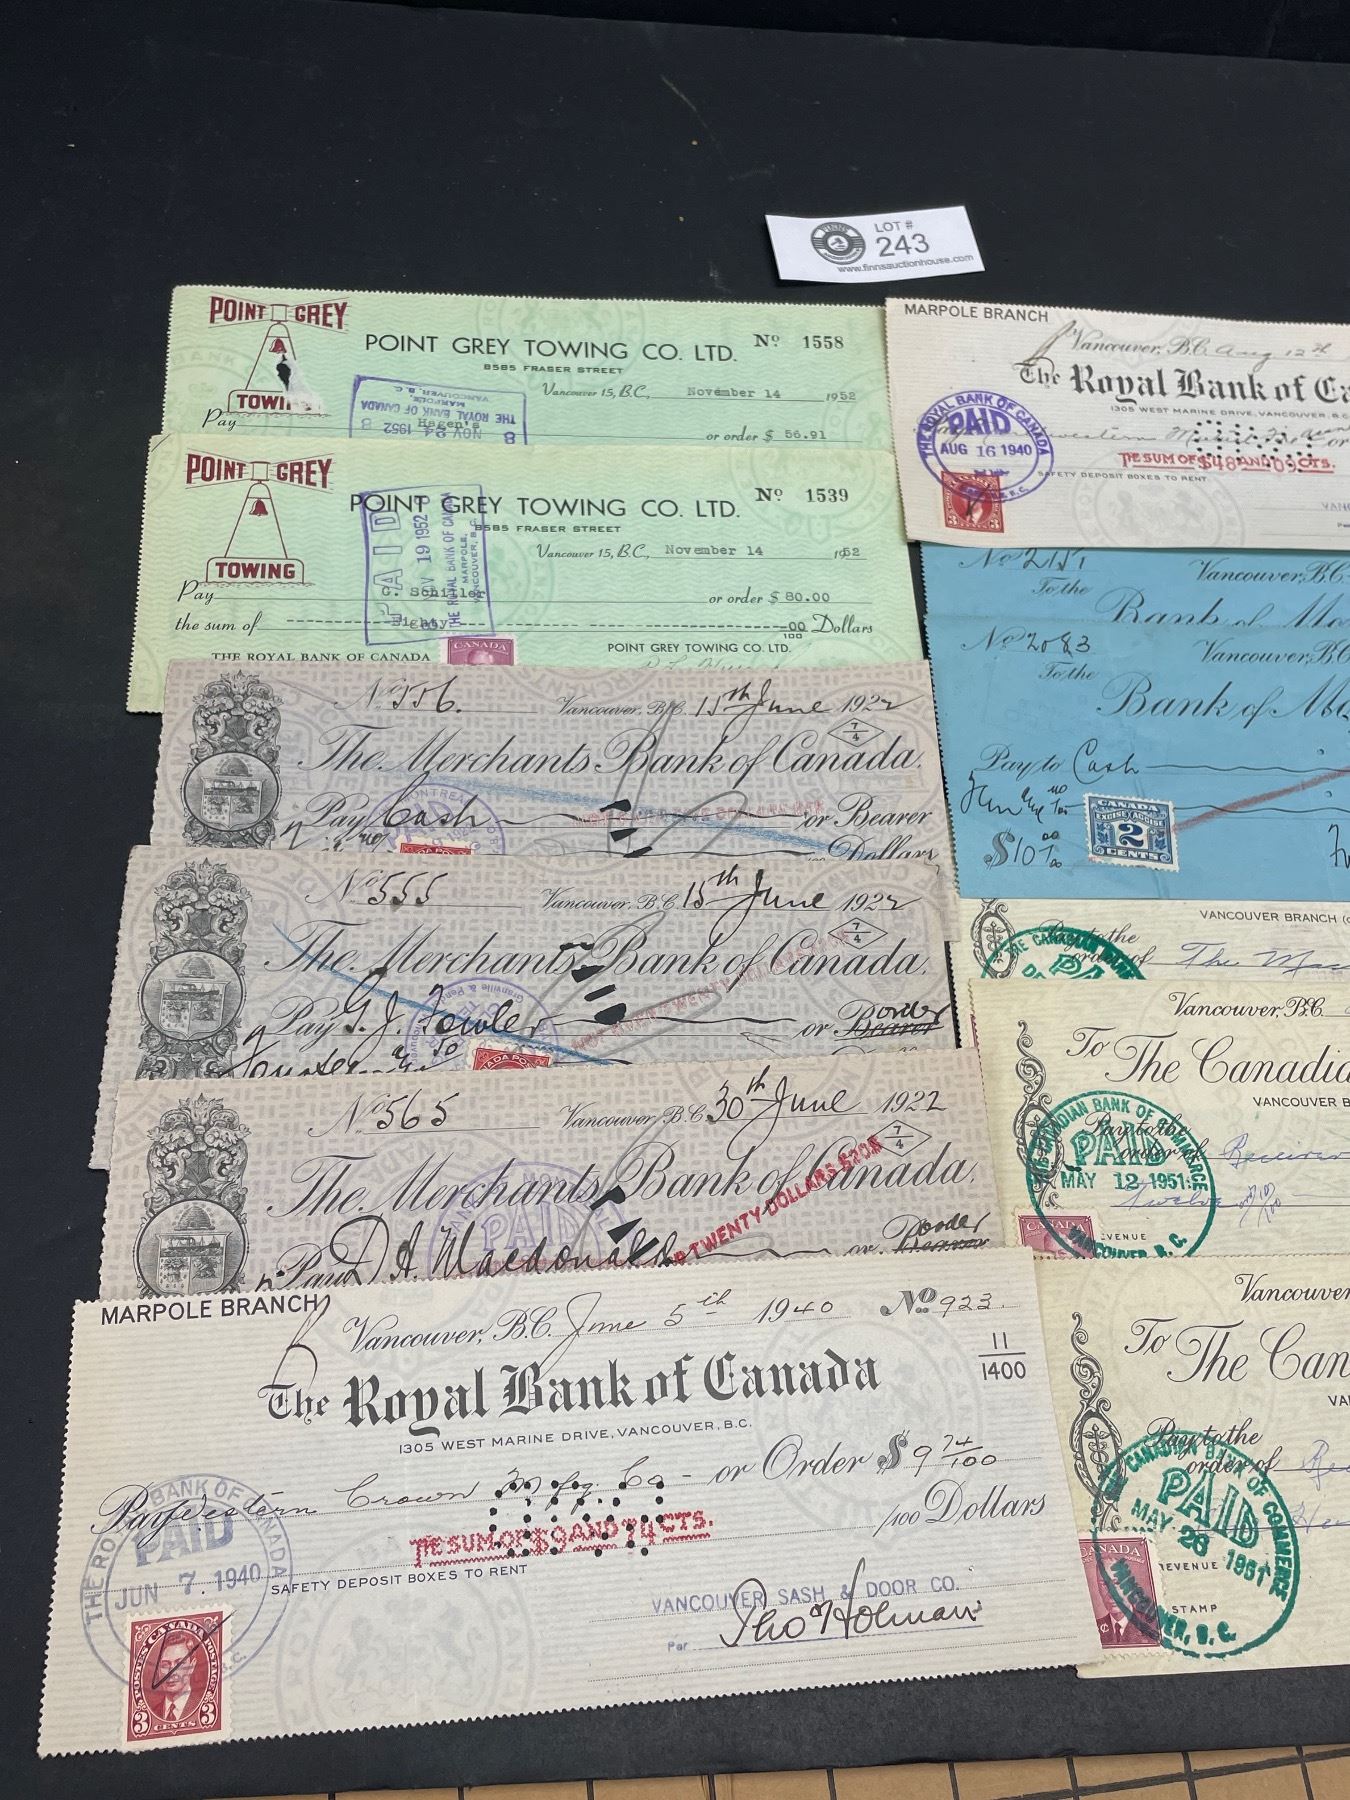 LOT #
243
www.finnsauctionhouse.com
POINT GREY
TOWING
POINT GREY TOWING CO. LTD.
Nº 1558
8585 FRASER STREET
Vancouver 15, B.C., November 14 1952
THE ROYAL BANK OF CANADA
MARPOLE,
VANCOUVER, B.C.
NOV 24 1952
Pay Hagen's or order $ 56.91
POINT GREY
TOWING
POINT GREY TOWING CO. LTD.
Nº 1539
8585 FRASER STREET
Vancouver 15, B.C., November 14 1952
PAID
NOV 19 1952
THE ROYAL BANK OF CANADA
MARPOLE,
VANCOUVER, B.C.
Pay C. Schiller or order $ 80.00
the sum of Eighty 00/100 Dollars
THE ROYAL BANK OF CANADA
CANADA
POINT GREY TOWING CO. LTD.
No 556. Vancouver, B.C. 15th June 1922
7/4
The Merchants Bank of Canada.
Pay Cash or Bearer
Dollars
No 555 Vancouver, B.C. 15th June 1922
7/4
The Merchants Bank of Canada.
Pay G. J. Fowler or Bearer order
No 565 Vancouver, B.C. 30th June 1922
7/4
The Merchants Bank of Canada.
PAID
TWENTY DOLLARS
Pay D. A. Macdonald or Bearer order
MARPOLE BRANCH
Vancouver, B.C. June 5th 1940 No 923.
11/1400
The Royal Bank of Canada
1305 WEST MARINE DRIVE, VANCOUVER, B.C.
Pay Western Crown Mfg. Co - or Order $ 9 74/100
THE SUM OF $9 AND 74 CTS.
/100 Dollars
THE ROYAL BANK OF CANADA
PAID
JUN 7 1940
SAFETY DEPOSIT BOXES TO RENT
VANCOUVER SASH & DOOR CO.
Per Thos Holman
POSTES CANADA POSTAGE
3 CENTS 3
MARPOLE BRANCH
Vancouver, B.C. Aug 12th
The Royal Bank of Ca
1305 WEST MARINE DRIVE, VANCOUVER, B.C
THE ROYAL BANK OF CANADA
PAID
AUG 16 1940
THE SUM OF $48 AND 03 CTS.
SAFETY DEPOSIT BOXES TO RENT
VAN
No 2151 Vancouver, B.C.
To the
Bank of Mo
No 2083 Vancouver, B.C
To the
Bank of M
Pay to Cash
CANADA
EXCISE ACCISE
2
CENTS
$10
VANCOUVER BRANCH
Pay to the
order of The Mac
THE CANADIAN BANK
Vancouver, B.C.
To The Canadia
VANCOUVER B
Pay to the
order of Receiver
THE CANADIAN BANK OF COMMERCE
PAID
MAY 12 1951
VANCOUVER, B. C.
Twelve 10/100
CANADA
REVENUE
Vancouver
To The Can
VA
Pay to the
order of Re
THE CANADIAN BANK OF COMMERCE
PAID
MAY 26 1951
VANCOUVER, B. C.
CANADA
REVENUE
STAMP